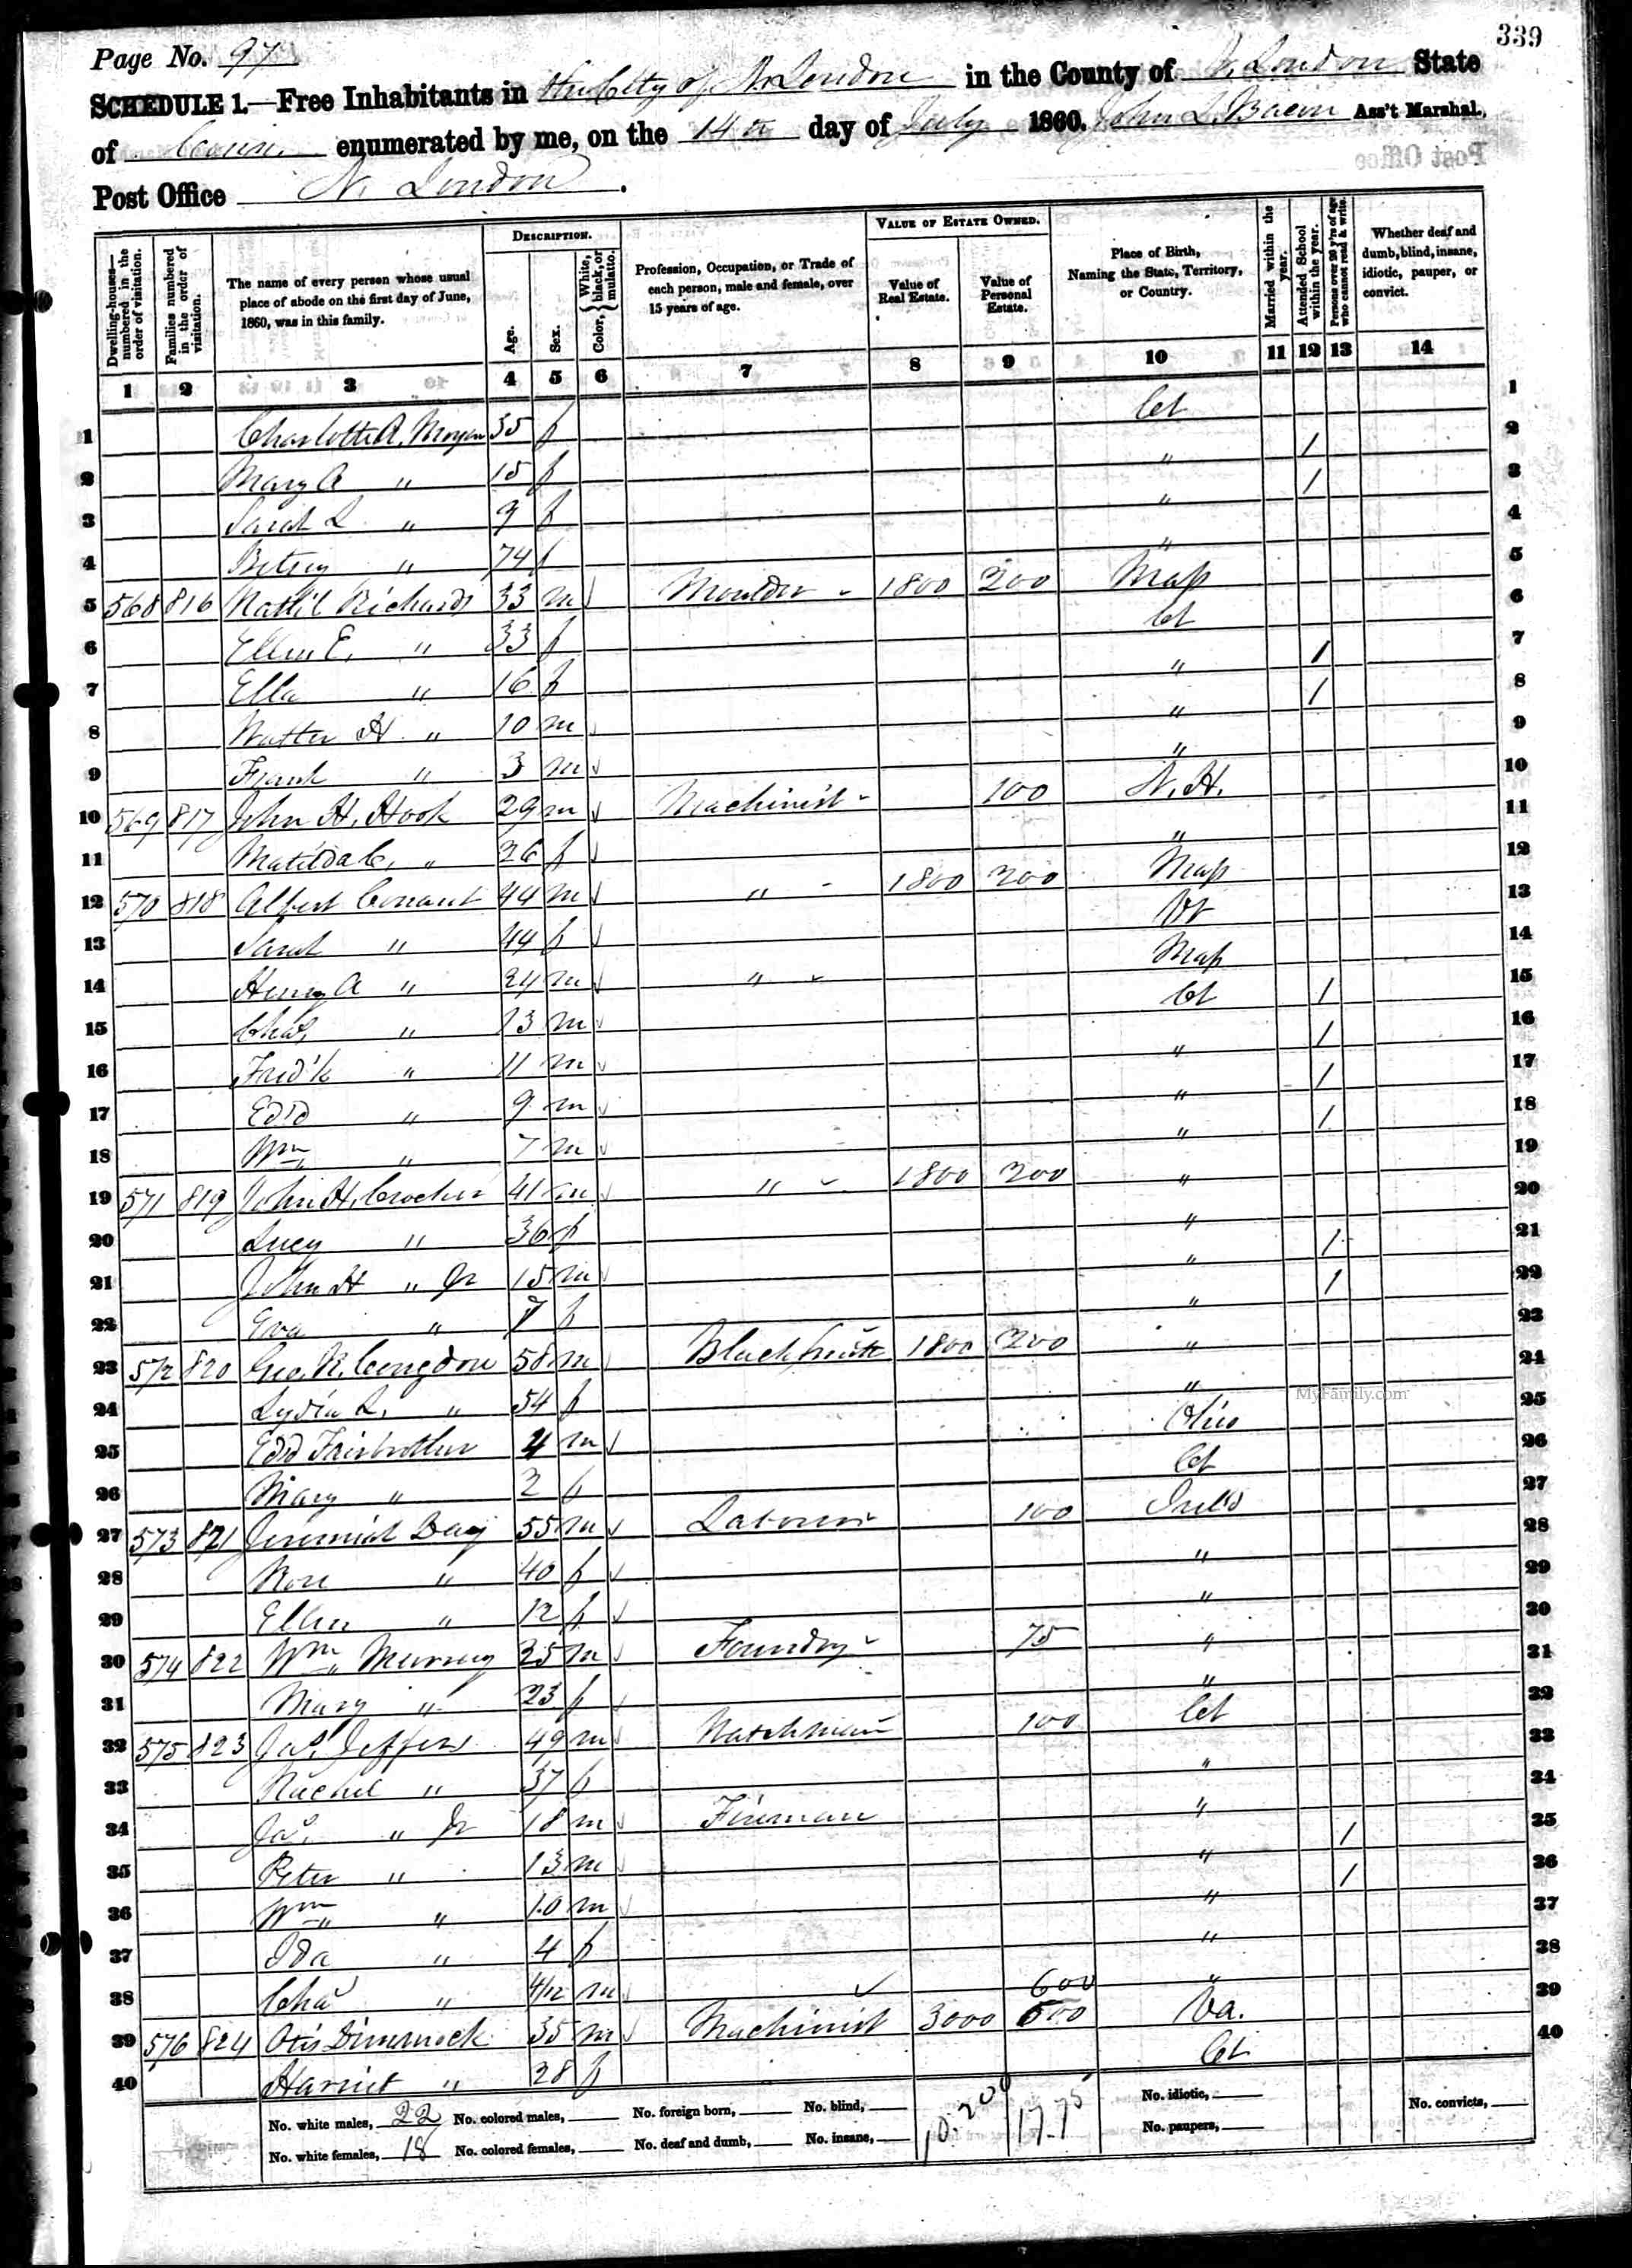 339
Page No. 97
SCHEDULE 1.—Free Inhabitants in the City of N. London in the County of N. London State
of Conn. enumerated by me, on the 14th day of July 1860. John L. Bacon Ass't Marshal.
Post Office
Post Office N. London.
Dwelling-houses—numbered in the order of visitation.
Families numbered in the order of visitation.
The name of every person whose usual place of abode on the first day of June, 1860, was in this family.
DESCRIPTION.
Age.
Sex.
Color, { White, black, or mulatto.
Profession, Occupation, or Trade of each person, male and female, over 15 years of age.
VALUE OF ESTATE OWNED.
Value of Real Estate.
Value of Personal Estate.
Place of Birth, Naming the State, Territory, or Country.
Married within the year.
Attended School within the year.
Persons over 20 y'rs of age who cannot read & write.
Whether deaf and dumb, blind, insane, idiotic, pauper, or convict.
1 2 3 4 5 6 7 8 9 10 11 12 13 14
1 Charlotte A. 35 f Ct 1
2 Mary A " 15 f " 1 2
3 Sarah L " 9 f " 1 3
4 Betsey " 74 f " 4
5 568 816 Nath'l Richards 33 m Moulder 1800 200 Mass 5
6 Ellen E. " 33 f Ct 6
7 Ella " 16 f " 1 7
8 Walter H. " 10 m " 1 8
9 Frank " 3 m " 9
10 569 817 John H. Hook 29 m Machinist 100 N. H. 10
11 Matilda C. " 26 f " 11
12 570 818 Albert Conant 44 m " 1800 200 Mass 12
13 Sarah " 44 f Vt 13
14 Henry A " 24 m " Mass 14
15 Chas. " 13 m Ct 1 15
16 Fred'k " 11 m " 1 16
17 Edd " 9 m " 1 17
18 Wm " 7 m " 1 18
19 571 819 John H. Crocker 41 m " 1800 200 " 19
20 Lucy " 36 f " 20
21 John H " Jr 15 m " 1 21
22 Eva " 7 f " 1 22
23 572 820 Geo. R. Congdon 58 m Blacksmith 1800 200 " 23
24 Lydia L. " 54 f " 24
MyFamily.com
25 Edd Fairbrother 4 m Ohio 25
26 Mary " 2 f Ct 26
27 573 821 Jeremiah Day 55 m Laborer 100 Irel'd 27
28 Rose " 40 f " 28
29 Ellen " 12 f " 29
30 574 822 Wm Murray 35 m Foundry 75 " 30
31 Mary " 23 f " 31
32 575 823 Jas. Jeffers 49 m Watchman 100 Ct 32
33 Rachel " 37 f " 33
34 Jas. " Jr 18 m Fireman " 34
35 Peter " 13 m " 1 35
36 Wm " 10 m " 1 36
37 Ida " 4 f " 37
38 Chas " 4/12 m " 38
600
39 576 824 Otis Dimmock 35 m Machinist 3000 500 Va. 39
40 Harriet " 28 f Ct 40
No. white males, 22 No. colored males, No. foreign born, No. blind, 10.200 1775 No. idiotic, No. convicts,
No. white females, 18 No. colored females, No. deaf and dumb, No. insane, No. paupers,